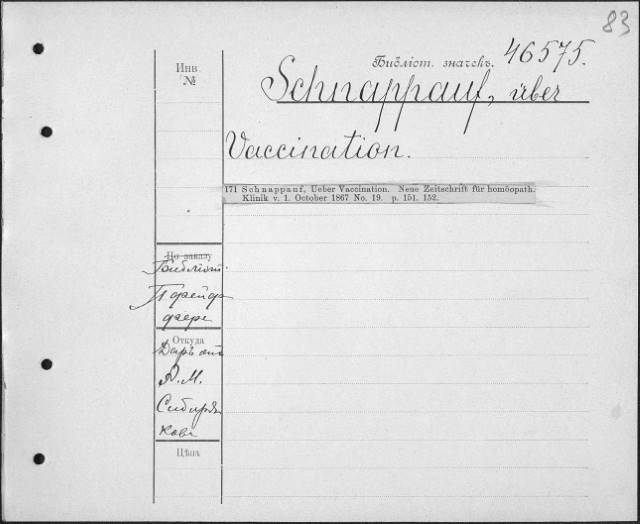 83
Библіот. значекъ. 46575.
Инв.
№
Schnappauf, über
Vaccination.
171 Schnappauf, Ueber Vaccination. Neue Zeitschrift für homöopath.
Klinik v. 1. October 1867 No. 19. p. 151. 152.
По заказу
Библіот.
Пфейф
фера
Откуда
Даръ отъ
А.М.
Сибиря
кова
Цѣна